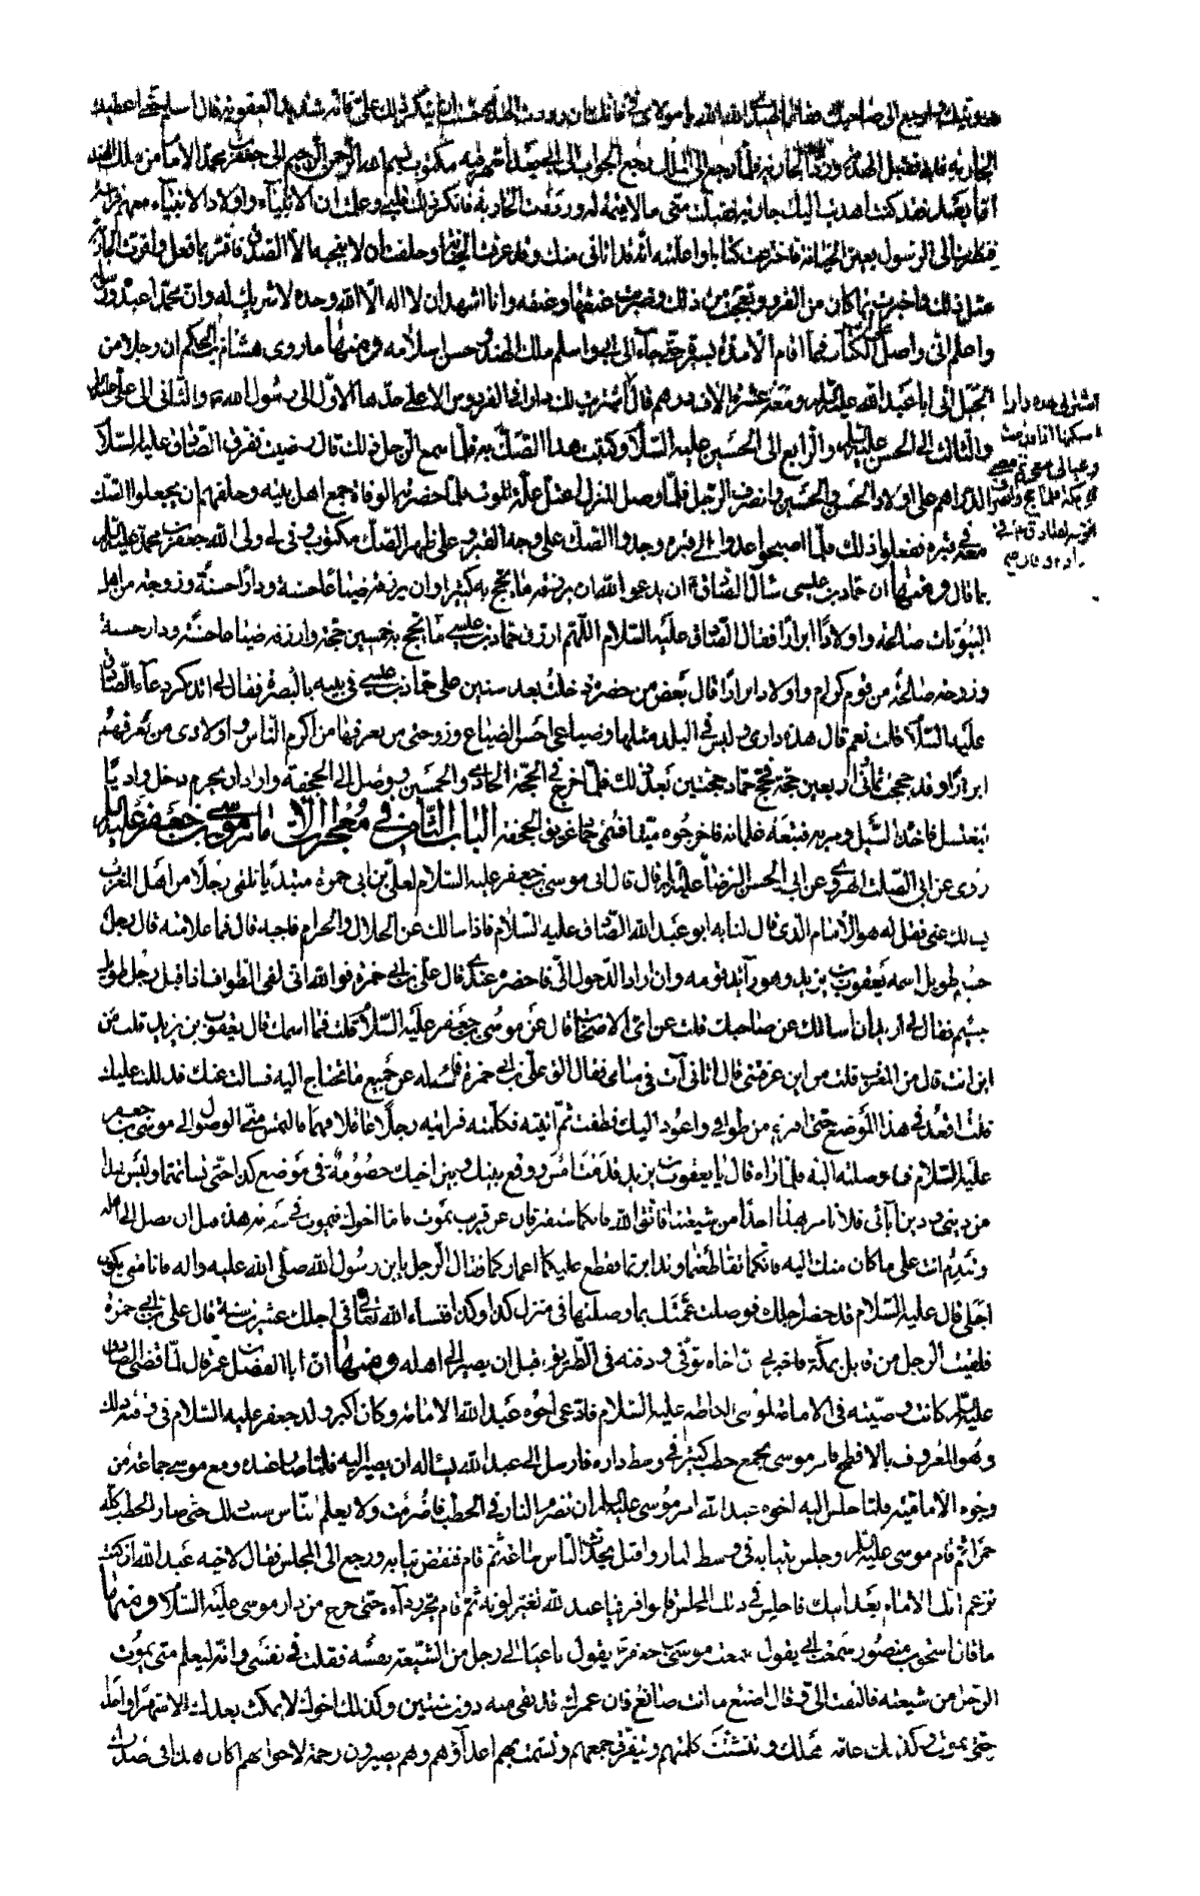 هديتك وارجع الى صاحبك فقال الهندى الله الله يا مولاى فى فانك ان رددت الهدية خشيت ان ينكر ذلك على فانه شديد العقوبة قال اسلم حتى اعطيك
الجارية فابى فقبل الهدية ورد الجارية فلما رجع الى الملك رجع الجواب الى بعد اشهر فيه مكتوب بسم الله الرحمن الرحيم الى جعفر بن محمد الامام من ملك الهند
اما بعد فقد كنت اهديت اليك جارية فقبلت منى ما لا قيمة له ورددت الجارية فانكر ذلك قلبى وعلمت ان الانبياء واولاد الانبياء معهم فراسة
فنظرت الى الرسول بعين الخيانة فاخترعت كتابا واعلمته انه قد اتانى منك وقد عرفت الخيانة وحلفت ان لا ينجيه الا الصدق فاقر بما فعل واقرت الجارية
بمثل ذلك واخبرت بما كان من الفرو فتعجبت من ذلك وضربت عنقها وعنقه وانا اشهد ان لا اله الا الله وحده لا شريك له وان محمدا عبده ورسوله
واعلم انى واصل الكتاب فما اقام الا مدة يسيرة حتى جاء الى واسلم ملك الهند وحسن اسلامه ومنها ما روى هشام بن الحكم ان رجلا من
الجبل اتى ابا عبد الله عليه السلام ومعه عشرة الاف درهم قال اشتريت لك دارا فى الفردوس الاعلى حدها الاول الى رسول الله والثانى الى على
اشتر لى بهذه دارا اسكنها اذا قدمت
وعيالى معى ثم مضى
الى مكة فلما حج وانصرف
والثالث الى الحسن عليه السلام والرابع الى الحسين عليه السلام وكتبت هذا الصك به فلما سمع الرجل ذلك قال رضيت ففرق الصادق عليه السلام
الدراهم على اولاد الحسن والحسين وانصرف الرجل فلما وصل المنزل اعتل علة الموت فلما حضرته الوفاة جمع اهل بيته وحلفهم ان يجعلوا الصك
معه فى قبره ففعلوا ذلك فلما اصبحوا غدوا الى قبره وجدوا الصك على وجه القبر وعلى ظهر الصك مكتوب وفى لى ولى الله جعفر بن محمد عليه السلام
بما قال ومنها ان حماد بن عيسى سال الصادق ان يدعو الله ان يرزقه ما يحج به كثيرا وان يرزقه ضياعا حسنة ودارا حسنة وزوجة من اهل
البيوتات صالحة واولادا ابرارا فقال الصادق عليه السلام اللهم ارزق حماد بن عيسى ما يحج به خمسين حجة وارزقه ضياعا حسنة ودار حسنة
وزوجة صالحة من قوم كرام واولادا ابرارا قال بعض من حضره دخلت بعد سنين على حماد بن عيسى فى بيته بالبصرة فقال لى اتذكر دعاء الصادق
عليه السلام قلت نعم قال هذه دارى وليس فى البلد مثلها وضياعى احسن الضياع وزوجتى من تعرفها من اكرم الناس واولادى من تعرفهم
ابرارا وقد حججت ثمانى واربعين حجة فحج حماد حجتين بعد ذلك فلما خرج فى الحجة الحادى والخمسين ووصل الى الجحفة واراد ان يحرم دخل واديا
ليغتسل فاخذه السيل ومر به فتبعه غلمانه فاخرجوه ميتا فسمى حماد غريق الجحفة الباب الثامن فى معجزات الامام موسى بن جعفر عليه السلام
روى عن ابى الصلت الهروى عن ابى الحسن الرضا عليه السلام قال قال ابى موسى بن جعفر عليه السلام لعلى بن ابى حمزة مبتديا تلقى رجلا من اهل المغرب
يسالك عنى فقل له هو الامام الذى قال لنا به ابو عبد الله الصادق عليه السلام فاذا سالك عن الحلال والحرام فاجبه قال فما علامته قال رجل
جسيم طويل اسمه يعقوب بن يزيد وهو رائد قومه وان اراد الدخول الى فاحضره عندى قال على بن ابى حمزة فوالله انى لفى الطواف اذ اقبل رجل طويل
جسيم فقال لى اريد ان اسالك عن صاحبك قلت عن اى الاصحاب قال عن موسى بن جعفر عليه السلام قلت فما اسمك قال يعقوب بن يزيد قلت من
اين انت قال من المغرب قلت من اين عرفتنى قال اتانى آت فى منامى فقال الق على بن ابى حمزة فسله عن جميع ما تحتاج اليه فسالت عنك فدللت عليك
قلت اقعد فى هذا الموضع حتى افرغ من طوافى واعود اليك فطفت ثم اتيته فكلمته فرايته رجلا عاقلا فهما فالتمس منى الوصول الى موسى بن جعفر
عليه السلام فاوصلته اليه فلما راه قال يا يعقوب بن يزيد قدمت امس ووقع بينك وبين اخيك خصومة فى موضع كذا حتى تساتمتما وليس هذا
من دينى ودين آبائى فلا نامر بهذا احدا من شيعتنا فاتق الله فانكما ستفترقان عن قريب بموت فاما اخوك فيموت فى سفرته هذه قبل ان يصل الى اهله
وتندم انت على ما كان منك اليه فانكما تقاطعتما وتدابرتما فقطع عليكما اعماركما فقال الرجل يا بن رسول الله صلى الله عليه واله فانا متى يكون
اجلى قال عليه السلام قد حضر اجلك فوصلت عمتك بما وصلتها فى منزل كذا وكذا فنساء الله تعالى فى اجلك عشرين سنة قال على بن ابى حمزة
فلقيت الرجل من قابل بمكة فاخبرنى ان اخاه توفى ودفنه فى الطريق قبل ان يصير الى اهله ومنها ان المفضل بن عمر قال لما قضى الصادق
عليه السلام كانت وصيته فى الامامة لموسى الكاظم عليه السلام فادعى اخوه عبد الله الامامة وكان اكبر ولد جعفر عليه السلام فى وقته ذلك
وهو المعروف بالافطح فامر موسى بجمع حطب كثير فى وسط داره فارسل الى عبد الله يساله ان يصير اليه فلما صار عنده ومع موسى جماعة من
وجوه الامامية فلما جلس اليه اخوه عبد الله امر موسى عليه السلام ان تضرم النار فى الحطب فاضرمت ولا يعلم الناس سبب ذلك حتى صار الحطب كله
جمرا ثم قام موسى عليه السلام وجلس بثيابه فى وسط النار واقبل يحدث الناس ساعة ثم قام فنفض ثيابه ورجع الى المجلس فقال لاخيه عبد الله ان كنت
تزعم انك الامام بعد ابيك فاجلس فى ذلك المجلس قالوا فراينا عبد الله تغير لونه ثم قام يجر رداءه حتى خرج من دار موسى عليه السلام ومنها
ما قال اسحق بن منصور سمعت ابى يقول سمعت موسى بن جعفر يقول ناعيا الى رجل من الشيعة نفسه فقلت فى نفسى وانه ليعلم متى يموت
الرجل من شيعته فالتفت الى فقال اصنع ما انت صانع فان عمرك قد بقى منه دون سنتين وكذلك اخوك لا يمكث بعدك الا شهرا واحدا
حتى يموت وكذلك عامة اهلك وتتشتت كلمتهم ويتفرق جمعهم وتشمت بهم اعداؤهم وهم يصيرون رحمة لاخوانهم اكان هذا فى صدرك